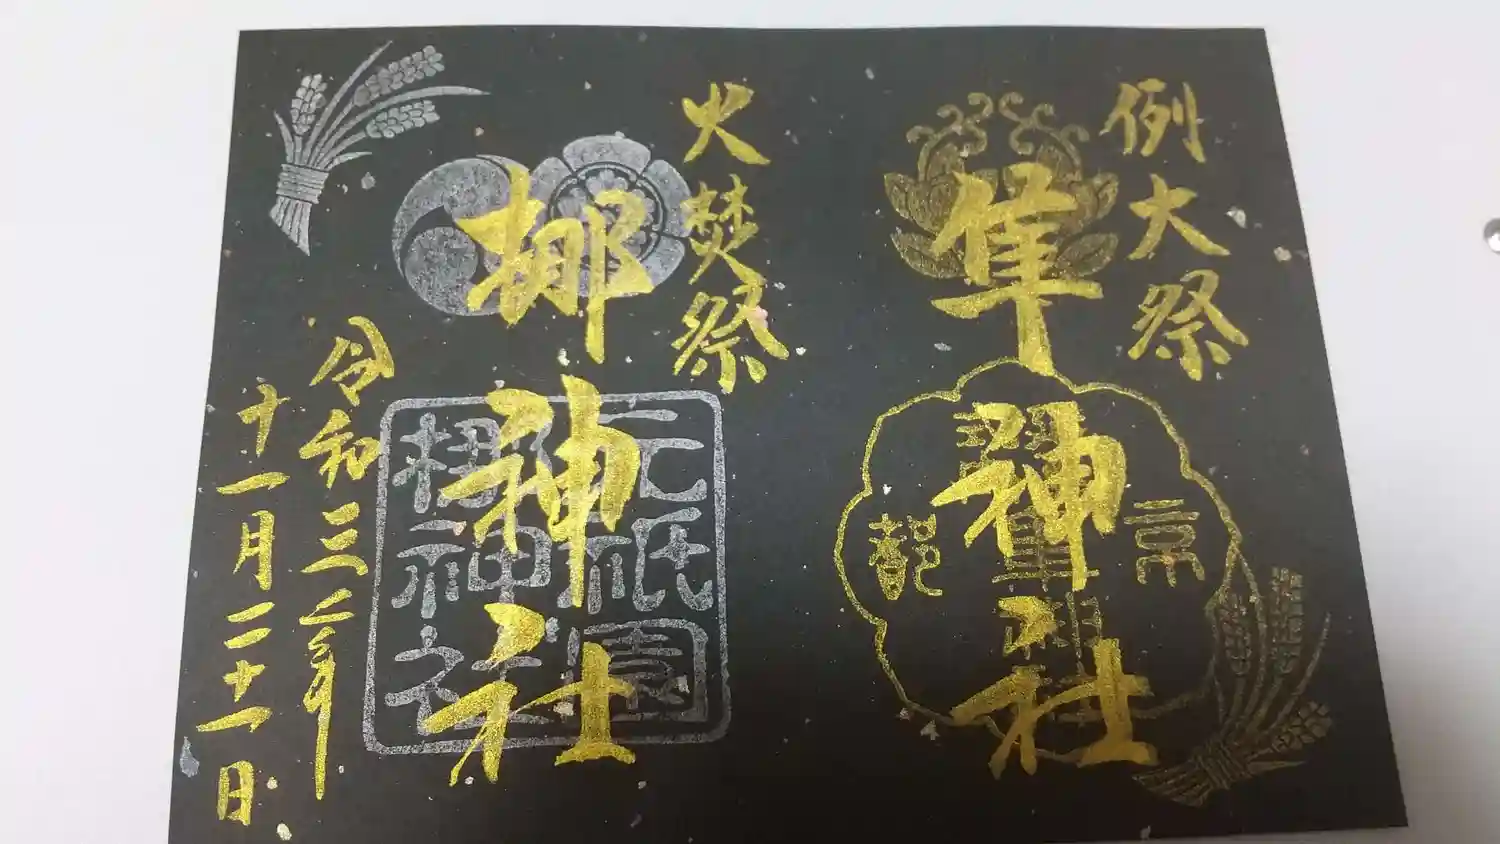 例大祭
隼神社
京都
火焚祭
梛神社
元祇園
梛神社
令和三年
十一月二十一日